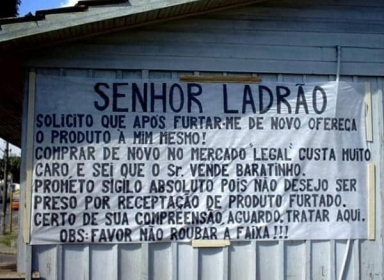 SENHOR LADRÃO
SOLICITO QUE APÓS FURTAR-ME DE NOVO OFEREÇA
O PRODUTO À MIM MESMO!
COMPRAR DE NOVO NO MERCADO "LEGAL" CUSTA MUITO
CARO E SEI QUE O Sr. VENDE BARATINHO.
PROMETO SIGILO ABSOLUTO POIS NÃO DESEJO SER
PRESO POR RECEPTAÇÃO DE PRODUTO FURTADO.
CERTO DE SUA COMPREENSÃO, AGUARDO, TRATAR AQUI.
OBS: FAVOR NÃO ROUBAR A FAIXA!!!